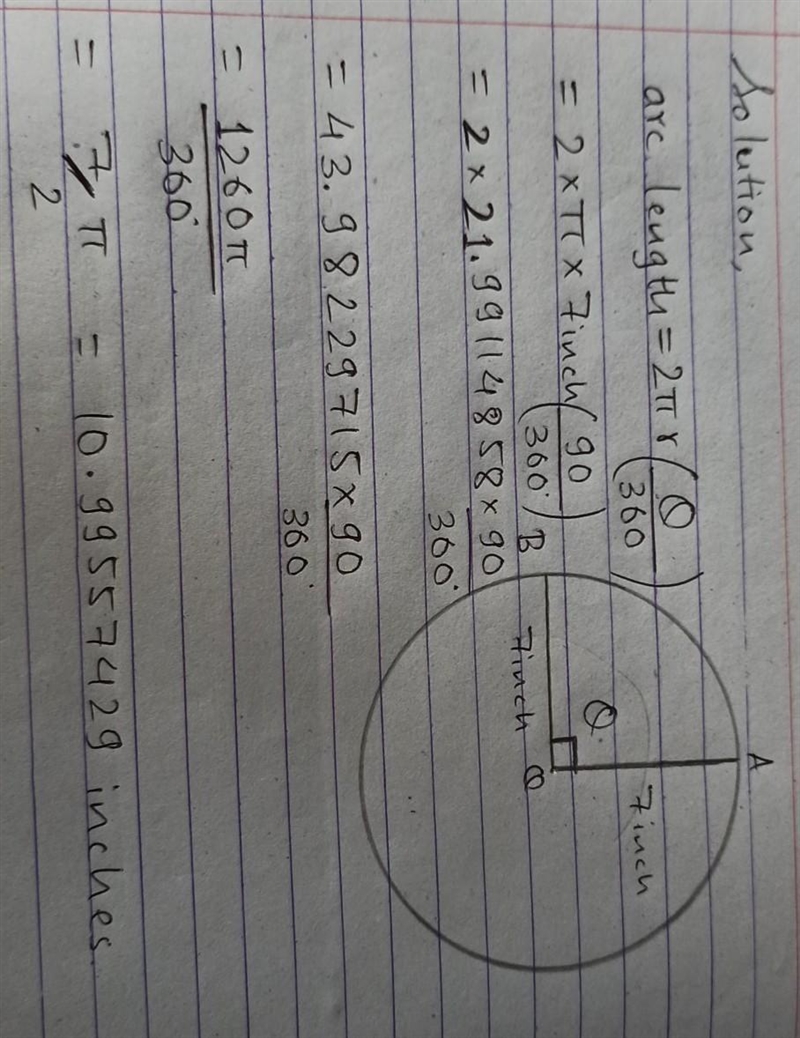 Solution,
arc length = 2πr (θ/360)
= 2 × π × 7inch (90/360°)
= 2 × 21.99114858 × 90/360°
= 43.98229715 × 90/360°
= 1260π/360°
= 7/2 π = 10.99557429 inches.
A
B
7inch
7inch
θ
O